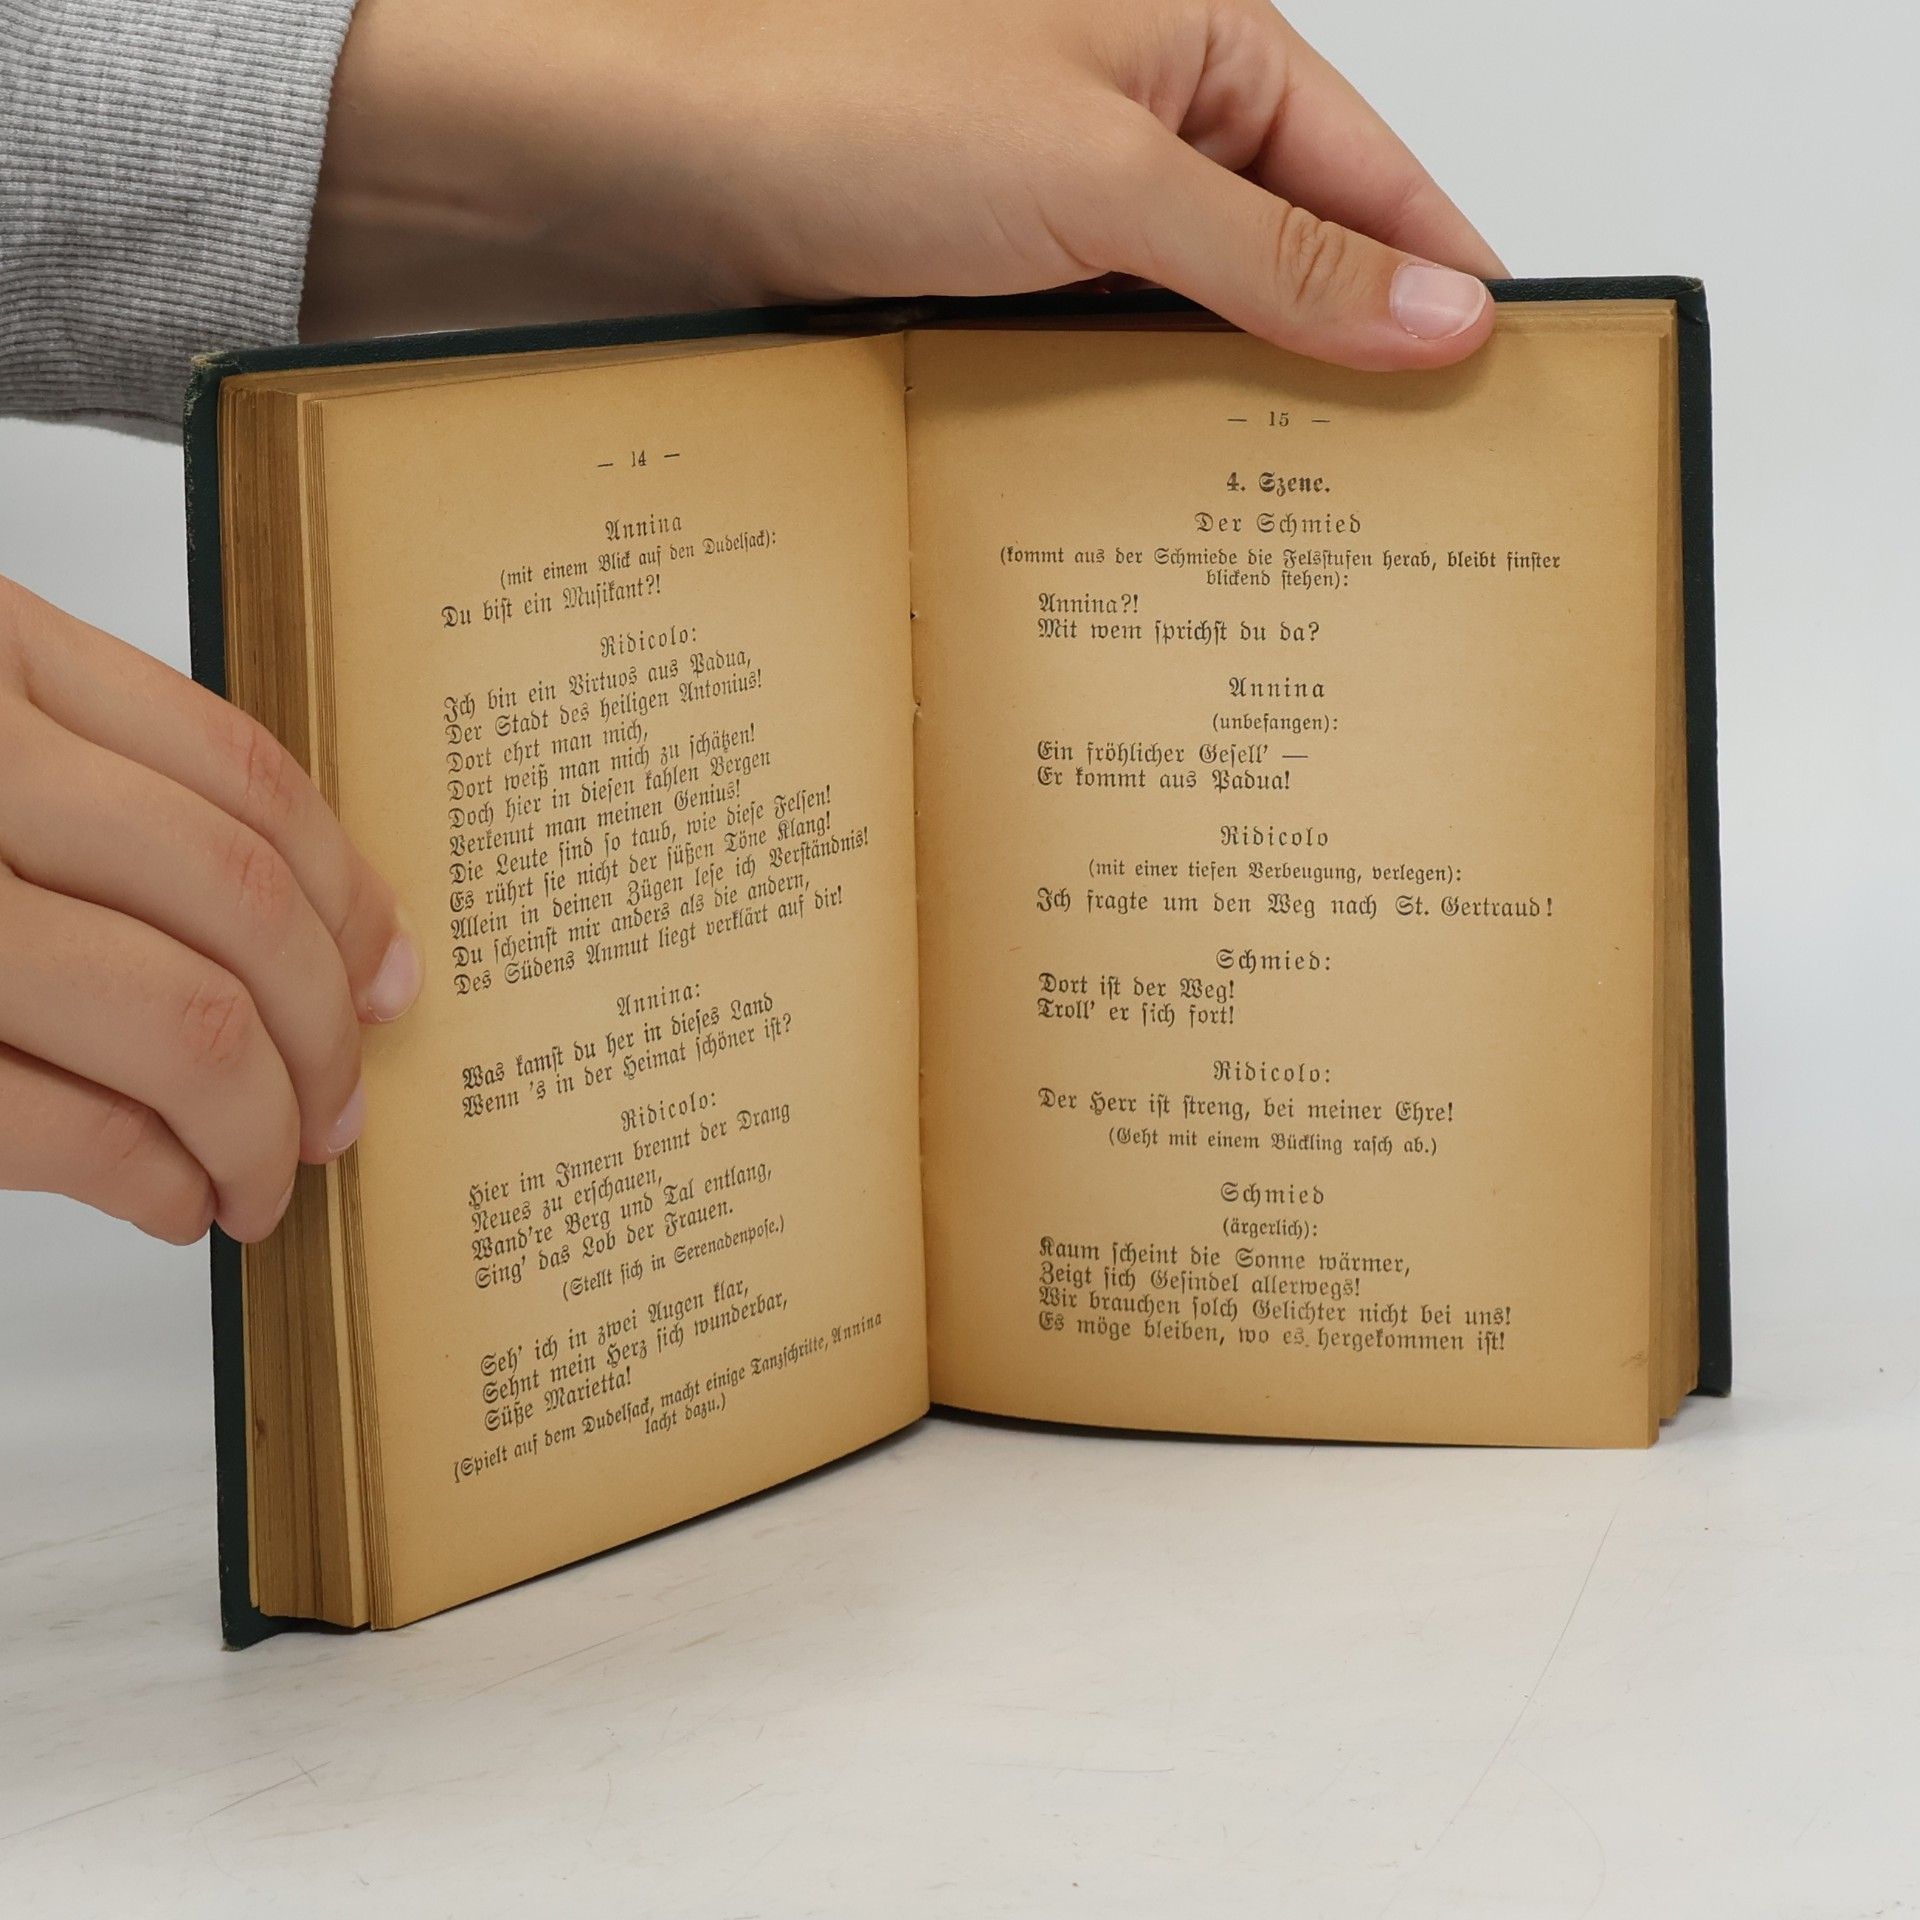 — 14 —
Annina
(mit einem Blick auf den Dudelsack):
Du bist ein Musikant?!
Ridicolo:
Ich bin ein Virtuos aus Padua,
Der Stadt des heiligen Antonius!
Dort ehrt man mich,
Dort weiß man mich zu schätzen!
Doch hier in diesen kahlen Bergen
Verkennt man meinen Genius!
Die Leute sind so taub, wie diese Felsen!
Es rührt sie nicht der süßen Töne Klang!
Allein in deinen Zügen lese ich Verständnis!
Du scheinst mir anders als die andern,
Des Südens Anmut liegt verklärt auf dir!
Annina:
Was kamst du her in dieses Land
Wenn 's in der Heimat schöner ist?
Ridicolo:
Hier im Innern brennt der Drang
Neues zu erschauen,
Wand're Berg und Tal entlang,
Sing' das Lob der Frauen.
(Stellt sich in Serenadenpose.)
Seh' ich in zwei Augen klar,
Sehnt mein Herz sich wunderbar,
Süße Marietta!
[Spielt auf dem Dudelsack, macht einige Tanzschritte, Annina
lacht dazu.)
— 15 —
4. Szene.
Der Schmied
(kommt aus der Schmiede die Felsstufen herab, bleibt finster
blickend stehen):
Annina?!
Mit wem sprichst du da?
Annina
(unbefangen):
Ein fröhlicher Gesell' —
Er kommt aus Padua!
Ridicolo
(mit einer tiefen Verbeugung, verlegen):
Ich fragte um den Weg nach St. Gertraud!
Schmied:
Dort ist der Weg!
Troll' er sich fort!
Ridicolo:
Der Herr ist streng, bei meiner Ehre!
(Geht mit einem Bückling rasch ab.)
Schmied
(ärgerlich):
Kaum scheint die Sonne wärmer,
Zeigt sich Gesindel allerwegs!
Wir brauchen solch Gelichter nicht bei uns!
Es möge bleiben, wo es hergekommen ist!